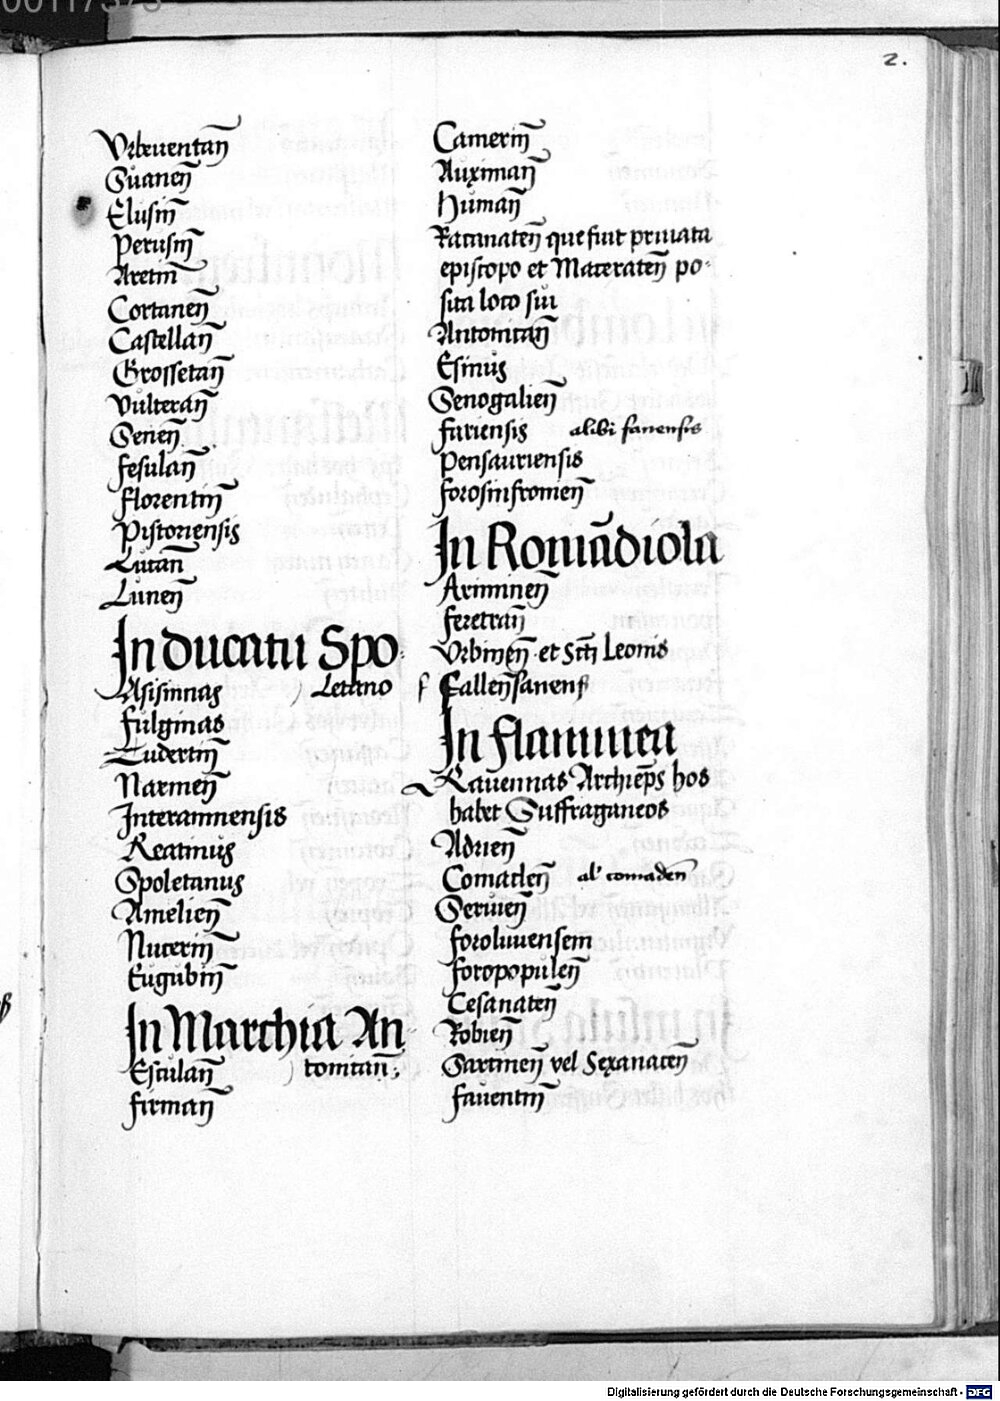 2.
Vrbeuentan̄
Suanen̄
Clusin̄
Perusin̄
Aretin̄
Cortanen̄
Castellan̄
Grossetan̄
Vulteran̄
Senen̄
fesulan̄
florentin̄
Pistoriensis
Lucan̄
Lunen̄
In ducatu Spo
Asisinnas ) letano
fulginas
Tudertin̄
Narnien̄
Interamnensis
Reatinus
Spoletanus
Amelien̄
Nucerin̄
Eugubin̄
In Marchia An
Esculan̄ ) conitan̄;
firman̄
Camerin̄
Auximan̄
Human̄
Racanaten̄ que fuit priuata
episcopo et Maceraten̄ po-
sita loco sui
Anconitan̄
Esinus
Senogalien̄
fariensis alibi fanensis
Pensauriensis
forosinfronien̄
In Romādiola
Ariminen̄
feretran̄
Vrbinen̄ et Sct̄i Leonis
f Callen̄ sanens̄
In flaminea
Rauennas Archiep̄s hos
habet Suffraganeos
Adrien̄
Comaclen̄ al' comaden̄
Seruien̄
foroliuiensem
foropopulen̄
Cesanaten̄
Robien̄
Sartinen̄ vel Sexanaten̄
fauentin̄
Digitalisierung gefördert durch die Deutsche Forschungsgemeinschaft - DFG